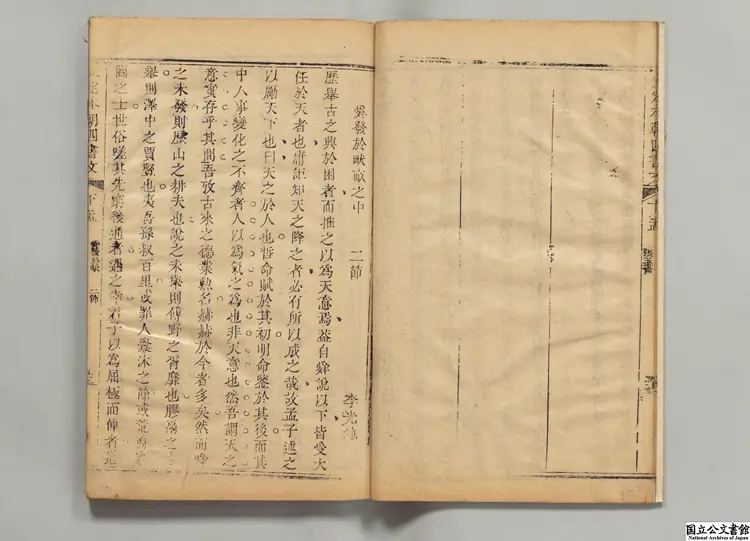 舜發於畎畝之中　二節
李光地
歷舉古之興於困者而推之以為天意焉蓋自舜說以下皆受大
任於天者也庸詎知天之降之者必有所以成之哉故孟子述之
以勵天下也曰天之於人也哲命賦於其初明命鑒於其後而其
中人事變化之不齊者人以為氣之為也非天意也然吾謂天之
意實存乎其間吾攷古來之德業勲名赫赫於今者多矣然而
之未發則歷山之耕夫也說之未舉則傅野之胥靡也膠鬲之
舉則澤中之賈豎也夷吾孫叔百里或罪人釁沐之餘或
之士世俗嗟其先窮後通者遇之幸君子以為屈極而伸者
本朝四書文
下孟
舜發於畎
二節
国立公文書館
National Archives of Japan